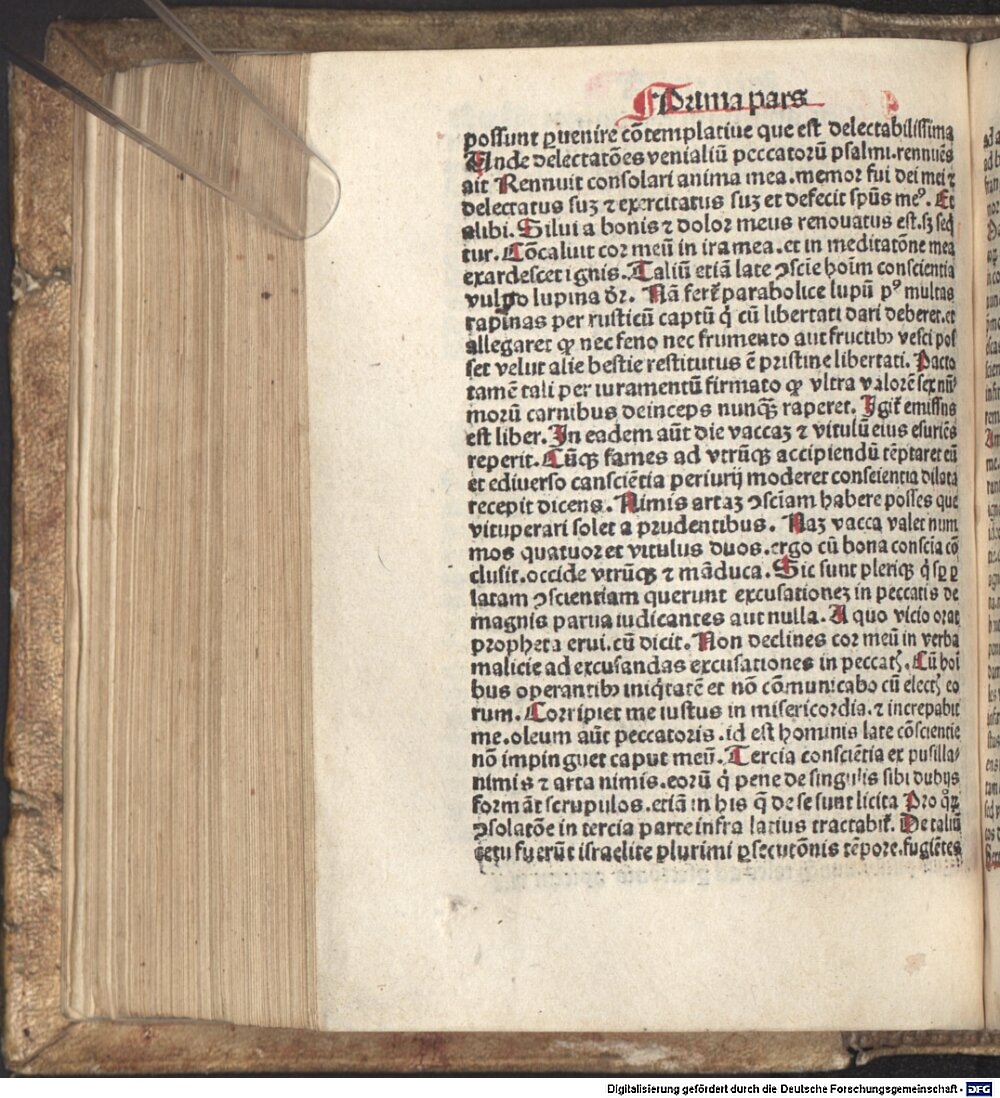 Prima pars
possunt ꝑuenire cōtemplatiue que est delectabilissima
Unde delectatōes venialiū peccatorū psalmi.rennuēs
ait Rennuit consolari anima mea.memor fui dei mei ⁊
delectatus suꝫ ⁊ exercitatus suꝫ et defecit spūs meꝰ. Et
alibi. Silui a bonis ⁊ dolor meus renouatus est.sꝫ seq̄
tur. Cōcaluit cor meū in ira mea.et in meditatōne mea
exardescet ignis. Taliū etiā late ↄscīe hoīm conscientia
vulgo lupina dr̄. Nā fert᷑ parabolice lupū pꝰ multas
rapinas per rusticū captū q̇ cū libertati dari deberet.et
allegaret ꝙ nec feno nec frumento aut fructibꝫ vesci pos
set velut alie bestie restitutus ē pristine libertati. Pacto
tamē tali per iuramentū firmato ꝙ vltra valorē sex nū
morū carnibus deinceps nunq̄ꝫ raperet. Igit᷑ emissus
est liber. In eadem aūt die vaccaꝫ ⁊ vitulū eius esuriēs
reperit. Cūqꝫ fames ad vtrūqꝫ accipiendū tēptaret eū
et ediuerso canscīētia periurij moderet conscientia dilata
recepit dicens. Nimis artaꝫ ↄsciam habere posses que
vituperari solet a prudentibus. Naꝫ vacca valet num
mos quatuor et vitulus duos.ergo cū bona conscia cō
clusit.occide vtrūqꝫ ⁊ māduca. Sic sunt pleriqꝫ q̇ sꝑ ꝑ
latam ↄscientiam querunt excusationeꝫ in peccatis de
magnis parua iudicantes aut nulla. A quo vicio orat
propheta erui.cū dicit. Non declines cor meū in verba
malicie ad excusandas excusationes in peccatꝭ. Cū hoī
bus operantibꝫ iniq̇tatē et nō cōmunicabo cū electꝭ eo
rum. Corripiet me iustus in misericordia.⁊ increpabit
me.oleum aūt peccatoris.id est hominis late cōscientie
nō impinguet caput meū. Tercia consciētia ex pusilla⸗
nimis ⁊ arta nimis.eorū q̇ pene de singulis sibi dubijs
formāt scrupulos.etiā in his q̄ de se sunt licita Pro qꝝ
ↄsolatōe in tercia parte infra latius tractabit᷑. De taliū
cetu fuerūt israelite plurimi ꝑsecutōnis tēpore.fugiētes
Digitalisierung gefördert durch die Deutsche Forschungsgemeinschaft - DFG